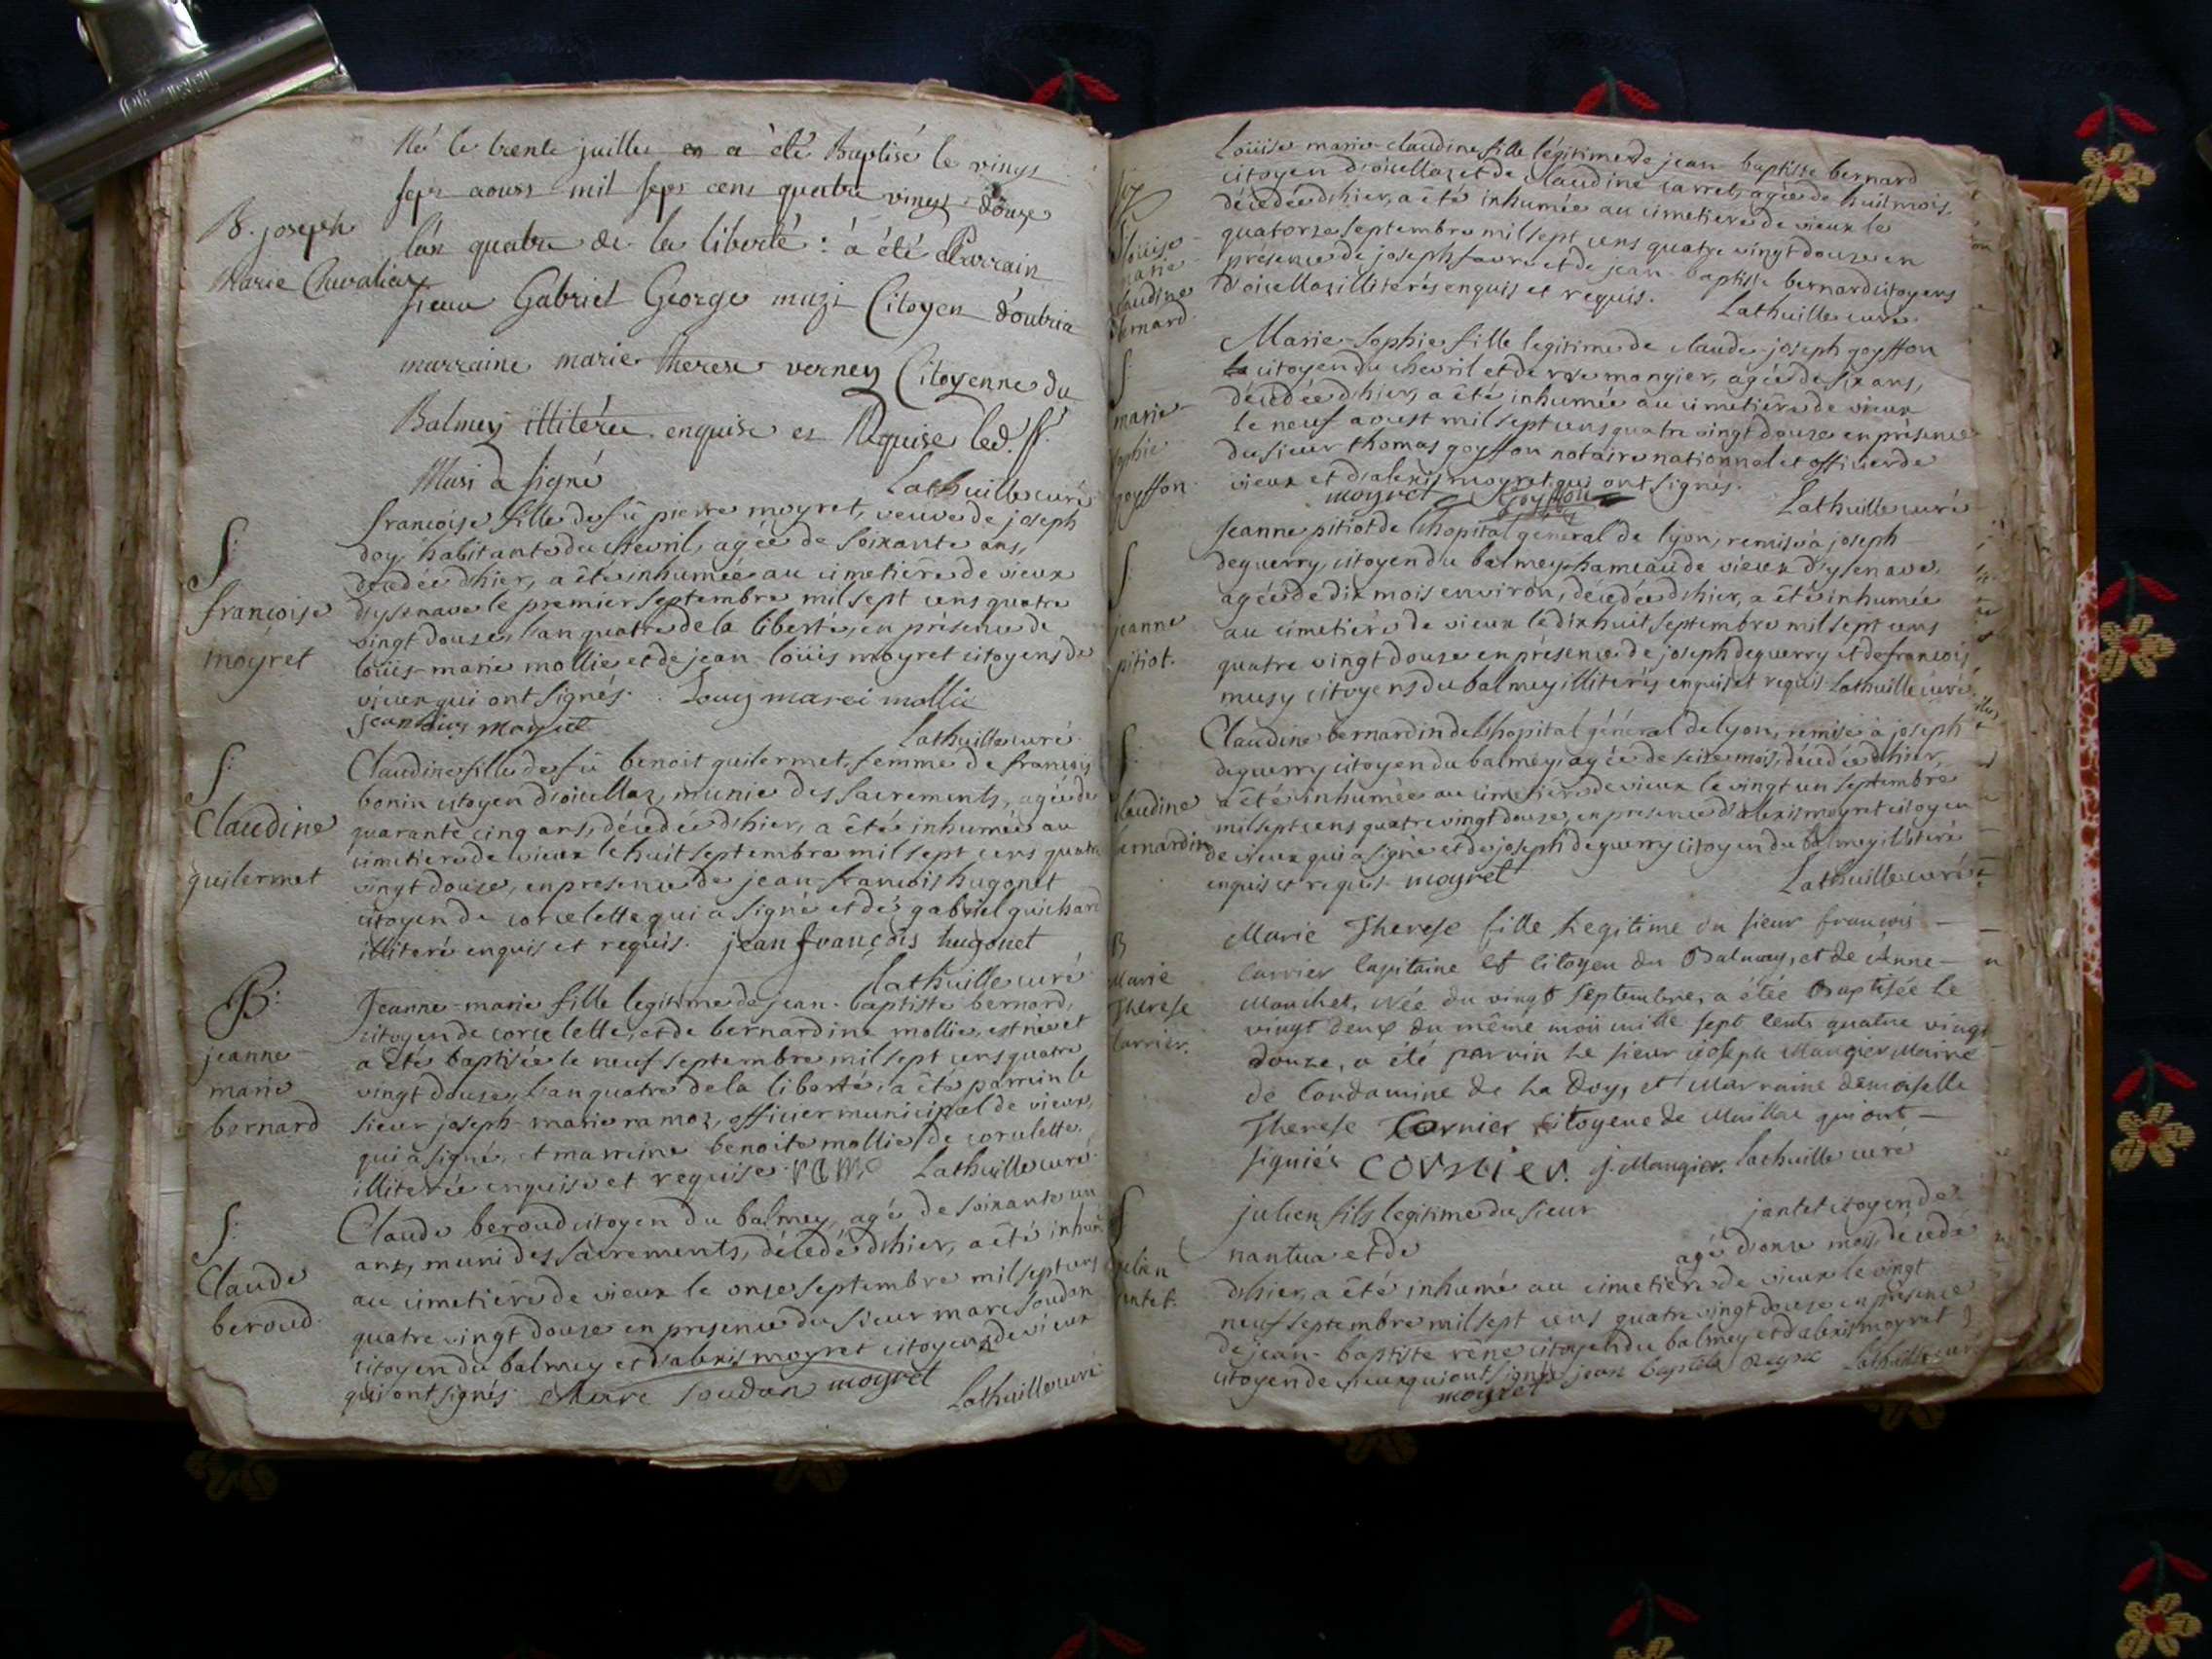 Né le trente juillet en a été Baptisé le vingt
sept aoust mil sept cens quatre vingt douze
B. joseph
Marie Chevalier
l'an quatre de la liberté : à été Parrain
sieur Gabriel George muzi Citoyen d'outria
marraine marie Therese verney Citoyenne du
Balmey illitérée enquise et Requise led. sr.
Musi a signé
Lathuille curé
S:
françoise
moyret
françoise fille de fû pierre moyret, veuve de joseph
doy habitante du chevril, agée de soixante ans,
décédée d'hier, a été inhumée au cimetière de vieux
d'ysenave le premier septembre mil sept cens quatre
vingt douze, l'an quatre de la liberté, en présence de
loüis-marie mollie et de jean-loüis moyret citoyens de
vieux qui ont signés. Louy marei mollie
jean luy moyret
Lathuille curé
S:
Claudine
guilermet
Claudine fille de fû benoit guilermet, femme de françois
bonin citoyen d'oisellaz, munie des sacrements, agée de
quarante cinq ans, décédée d'hier, a été inhumée au
cimetiere de vieux le huit septembre mil sept cens quatre
vingt douze, en presence de jean-françois hugonet
citoyen de corcelette qui a signé et de gabriel guichard
illiteré enquis et requis. jean françois hugonet
Lathuille curé
B:
jeanne-
marie
bernard
Jeanne-marie fille legitime de jean-baptiste bernard,
citoyen de corcelette, et de bernardine mollie, est née et
a été baptisée le neuf septembre mil sept cens quatre
vingt douze, l'an quatre de la liberté, a été parrin le
sieur joseph-marie ramoz, officier municipal de vieux,
qui a signé, et marrine benoite mollie de corcelette
illiterée enquise et requise. Lathuille curé
S:
Claude
beroud
Claude beroud citoyen du balmey, agé de soixante un
ans, muni des sacrements, décédé d'hier, a été inhumé
au cimetière de vieux le onze septembre mil sept cens
quatre vingt douze en presence du sieur marc soudan
citoyen du balmey et d'alexis moyret citoyens de vieux
qui ont signés. Marc soudan moyret
Lathuille curé
Louise
marie-
claudine
bernard
Loüise marie-claudine fille légitime de jean-baptiste bernard
citoyen d'oisellaz et de claudine carret, agée de huit mois,
décédée d'hier, a été inhumée au cimetiere de vieux le
quatorze septembre mil sept cens quatre vingt douze en
présence de joseph favre et de jean-baptiste bernard citoyens
d'oisellaz illiterés enquis et requis.
Lathuille curé.
S:
marie-
sophie
goyffon
Marie-Sophie fille legitime de claude-joseph goyffon
citoyen du chevril et de rose mongier, agée de six ans,
décédée d'hier, a été inhumée au cimetière de vieux
le neuf aoust mil sept cens quatre vingt douze en présence
du sieur thomas goyffon notaire nationnal et officier de
vieux et d'alexis moyret qui ont signés.
moyret Goyffon
Lathuille curé
S:
jeanne
pitiot.
Jeanne pitiot de l'hopital général de lyon, remise à joseph
deguerry, citoyen du balmey hameau de vieux d'ysenave,
agée de dix mois environ, décédée d'hier, a été inhumée
au cimetière de vieux le dix huit septembre mil sept cens
quatre vingt douze en présence de joseph deguerry et de françois
musy citoyens du balmey illiterés enquis et requis. Lathuille curé
S:
claudine
bernardin
Claudine bernardin de l'hopital général de lyon, remise à joseph
deguerry citoyen du balmey, agée de seize mois, décédée d'hier,
a été inhumée au cimetiere de vieux le vingt un septembre
mil sept cens quatre vingt douze, en presence d'alexis moyret citoyen
de vieux qui a signé et de joseph deguerry citoyen du balmey illiteré
enquis et requis. moyret
Lathuille curé
B
Marie
Therese
Carrier.
Marie Therese fille Legitime du sieur françois
Carrier Capitaine et Citoyen du Balmay, et de Anne
Mouchet, Née du vingt septembre, a étée Baptisée le
vingt deux du même mois mille sept cents quatre vingt
douze, a été parrin le sieur joseph Mangier Maire
de Condamine de La Doy, et Marraine demoiselle
Therese Cornier Citoyene de Maillat qui ont
signiés cornier. j. Mangier. Lathuille curé
S
julien
jantet.
julien fils legitime du sieur jantet citoyen de
nantua et de agé d'onze mois, décédé
d'hier, a été inhumé au cimetiere de vieux le vingt
neuf septembre mil sept cens quatre vingt douze en présence
de jean-baptiste rêne citoyen du balmey et d'alexis moyret
citoyen de vieux qui ont signés jean baptiste Lathuille curé
moyret